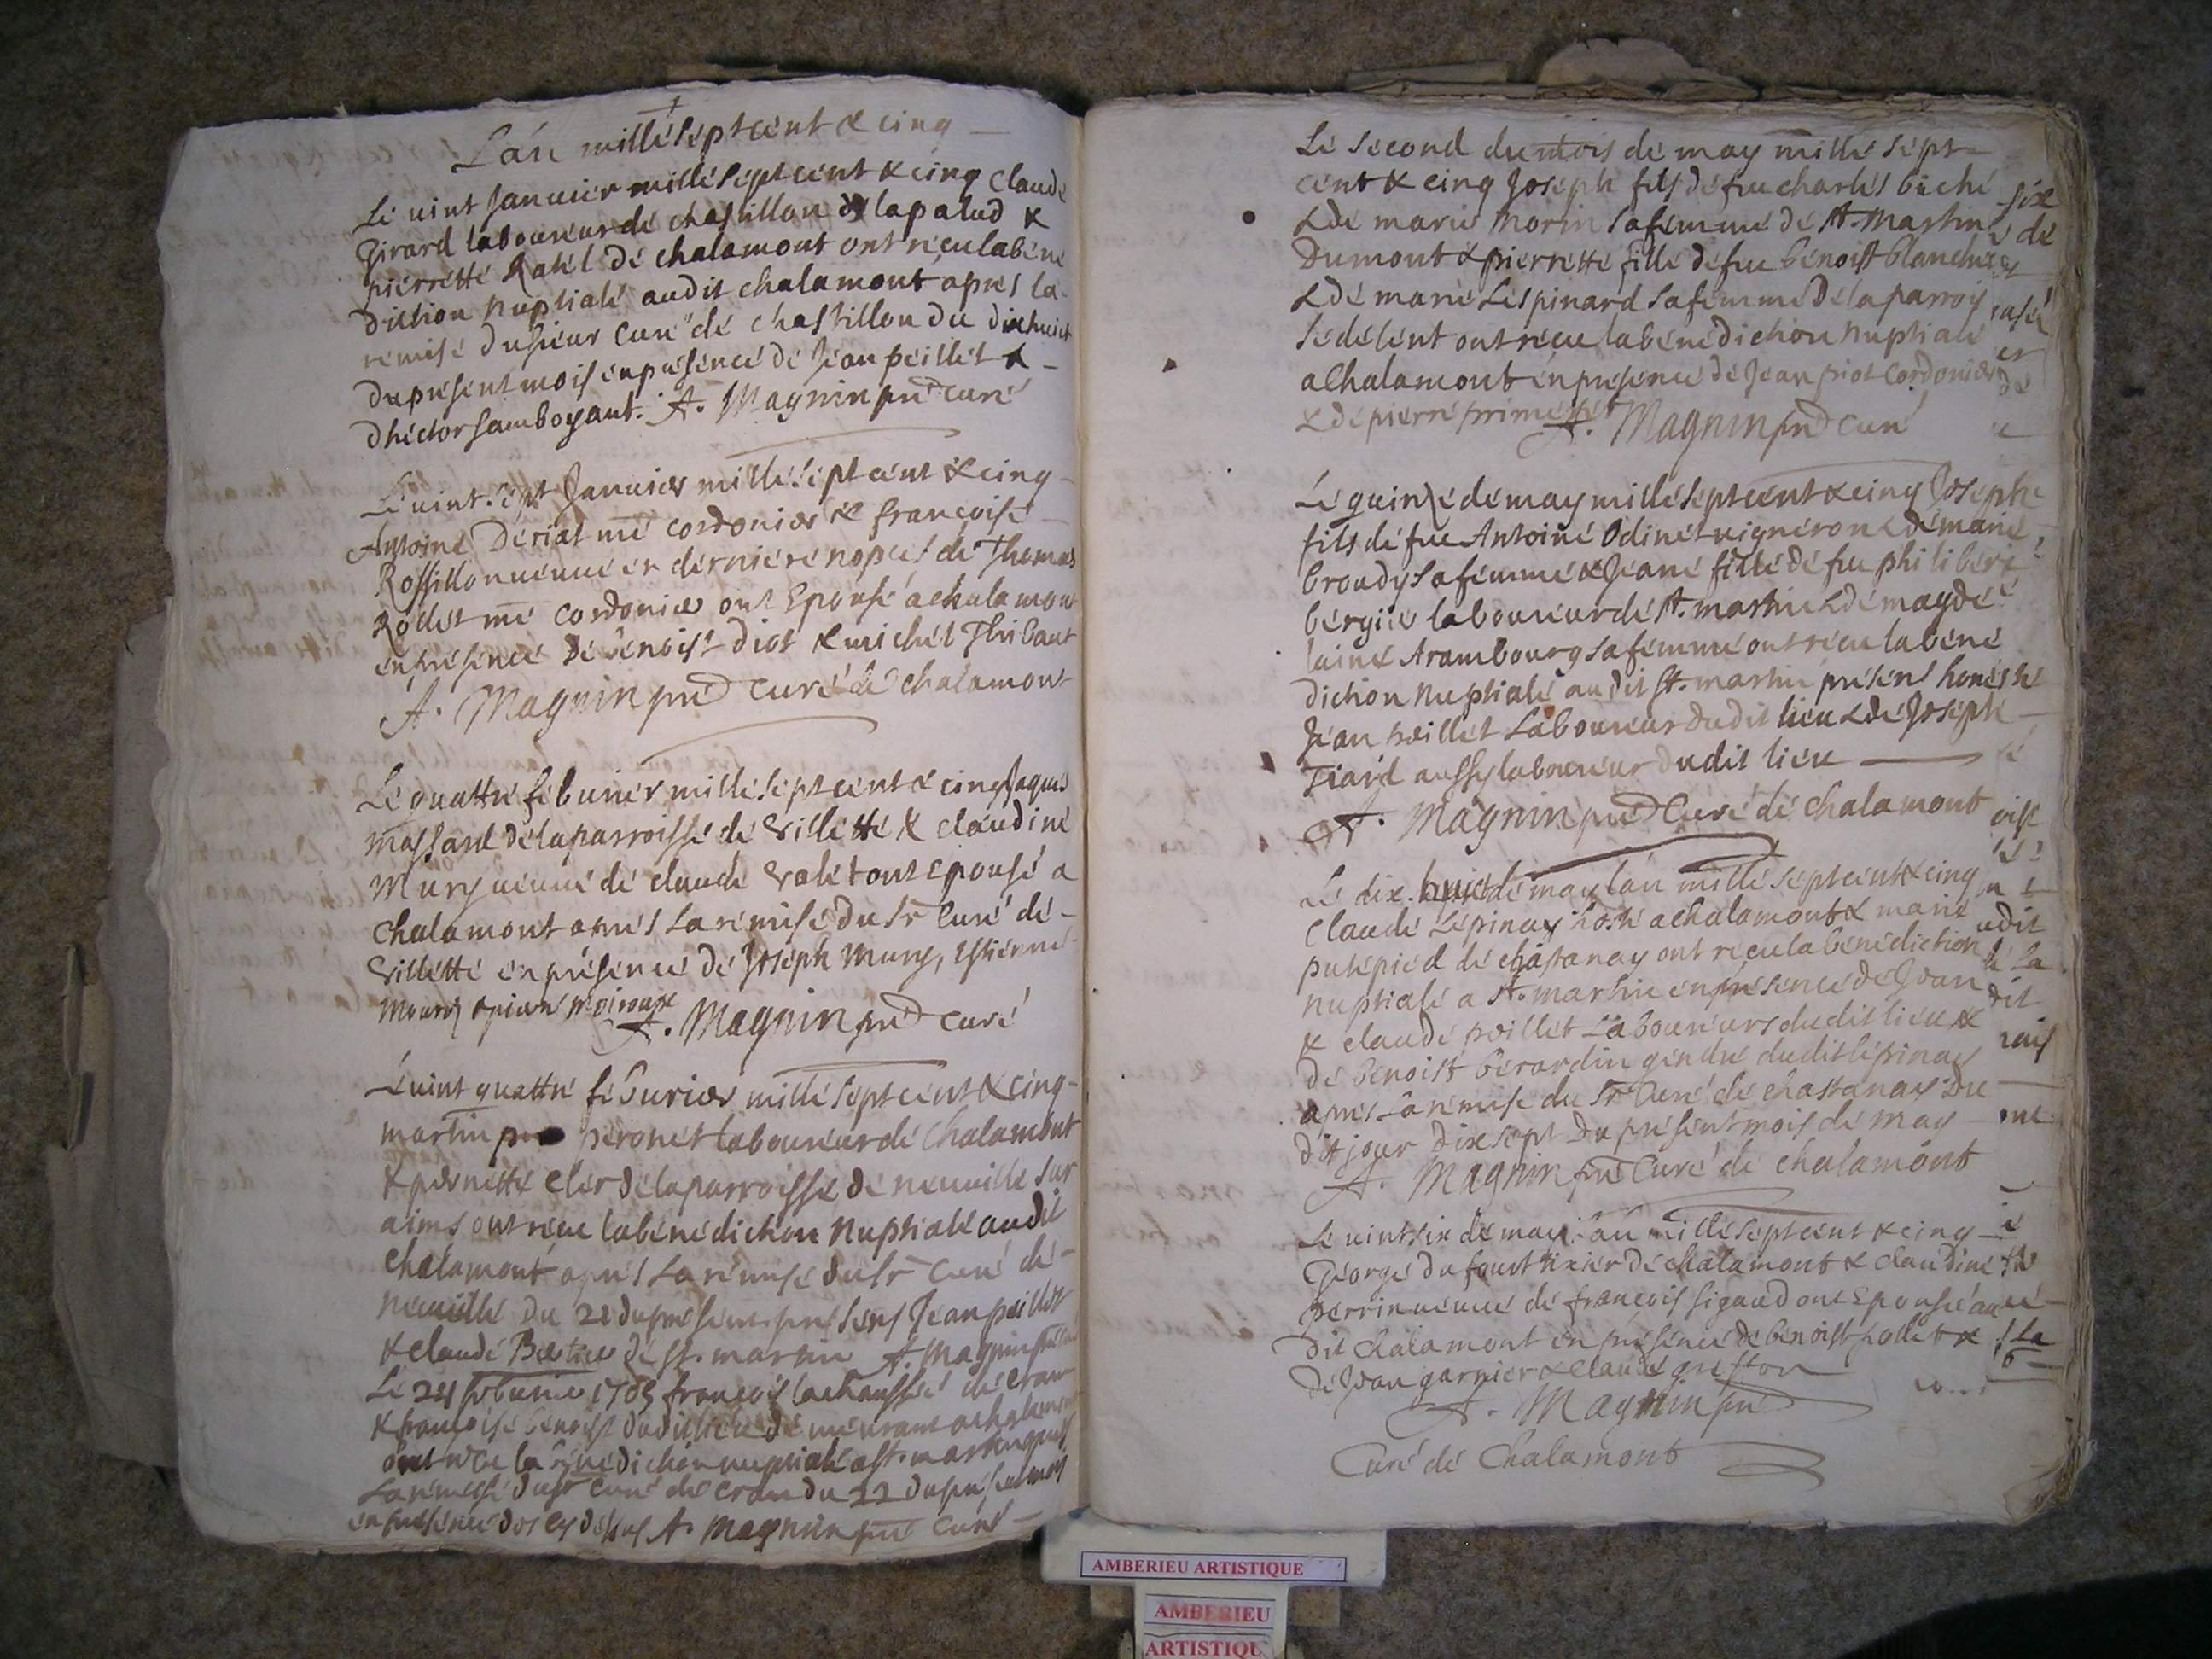 L'an mille sept cent & cinq
Le vint Janvier mille sept cent & cinq Claude
Girard laboureur de chastillon de la palud &
pierrette Ratel de chalamont ont receu la bene
diction nuptiale audit chalamont apres la
remise du sieur curé de chastillon du dixhuict
du present mois en presence de Jean peillet &
d'hector Jamboyant. A. Magnin pre curé
Le vint sept Janvier mille sept cent & cinq
Antoine Deriat me cordonier & françoise
Rossillon veuve en derniere nopces de Thomas
Rollet me cordonier ont Epousé a chalamont
en presence de benoist diot & michel Thibaut
A. Magnin pre curé de chalamont
Le quattre febvrier mille sept cent & cinq Jaques
massard de la parroisse de Villette & claudine
Mury veuve de claude Valet ont Epousé a
chalamont apres la remise du Sr Curé de
Villette en presence de Joseph Mury, Estienne
Moury & pierre Moiroux
A. Magnin pre curé
Le vint quattre febvrier mille sept cent & cinq
martin peronet laboureur de Chalamont
& pernette cler de la parroisse de neuville sur
ains ont receu la benediction Nuptiale audit
Chalamont apres la remise du Sr Curé de
neuville du 22 du present presens Jean peillet
& claude de St. martin A. Magnin
Le 24 febvrier 1705 françois lachaussée de cran
& françoise benoist dudit lieu demeurant a chalamont
ont receu la benediction nuptiale a St. martin apres
la remise du Sr curé de cran du 22 du present mois
en presence des cy dessus A. Magnin pre curé
Le second du mois de may mille sept
cent & cinq Joseph fils de feu charles buché
& de marie Morin sa femme de St. Martin
Dumont & pierrette fille de feu benoist blanchet
& de marie Lespinard sa femme de la parrois
se de lent ont receu la benediction Nuptiale
a Chalamont en presence de Jean priot cordonier
& de pierre
A. Magnin pre curé
Le quinze de may mille sept cent & cinq Joseph
fils de feu Antoine Odinet vigneron & de marie
broudy sa femme & Jeane fille de feu philibert
bergier laboureur de St. martin & de magde
laine Arambourg sa femme ont receu la bene
diction Nuptiale audit St. martin presens honeste
Jean peillet Laboureur dudit lieu & de Joseph
Tiard aussy laboureur dudit lieu
A. Magnin pre Curé de chalamont
Le dix huict de may l'an mille sept cent & cinq
Claude Lepinay hoste a chalamont & marie
putepied de chastanay ont receu la benediction
nuptiale a St. martin en presence de Jean
& claude peillet Laboureurs dudit lieu &
de benoist berardin gendre dudit lepinay
apres la remise du Sr Curé de chastanay du
dit jour dix sept du present mois de may
A. Magnin pre Curé de chalamont
Le vint six de may l'an mille sept cent & cinq
George dufour tixier de chalamont & Claudine
perrin veuve de françois sigaud ont Epousé au
dit Chalamont en presence de benoist pollet &
de Jean garnier & claude
A. Magnin pre
Curé de Chalamont
AMBERIEU ARTISTIQUE
AMBERIEU
ARTISTIQU